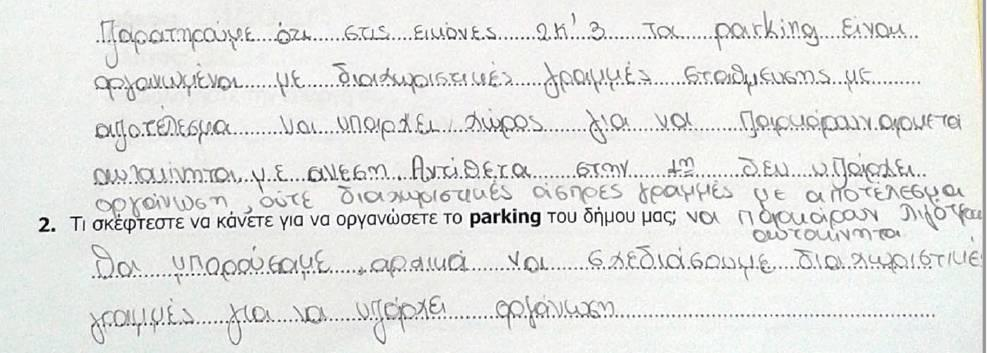 Παρατηρούμε ότι στις εικόνες 2κ' 3 τα parking είναι
οργανωμένα με διαχωριστικές γραμμές στάθμευσης με
αποτέλεσμα να υπάρχει χώρος για να παρκάρουν αρκετά
αυτοκίνητα με άνεση. Αντίθετα στην 1η δεν υπάρχει
οργάνωση, ούτε διαχωριστικές άσπρες γραμμές με αποτέλεσμα
2. Τι σκέφτεστε να κάνετε για να οργανώσετε το parking του δήμου μας; να παρκάραν λιγότερα
αυτοκίνητα.
Θα μπορούσαμε, αρχικά να σχεδιάσουμε διαχωριστικές
γραμμές για να υπάρχει οργάνωση